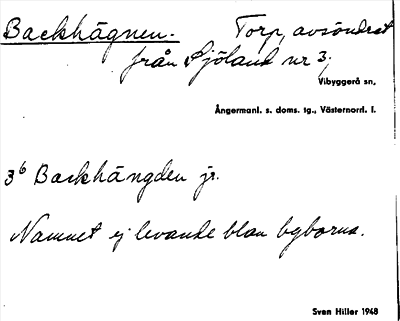 Backhägnen. Torp, avsöndrat
från Sjöland nr 3,
Vibyggerå sn,
Ångermanl. s. doms. tg., Västernorrl. l.
3⁶ Backhängden jr.
Namnet ej levande bland byborna.
Sven Hiller 1948